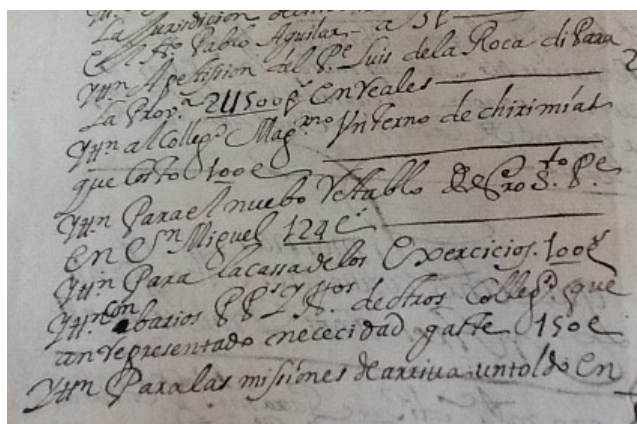 La Jurisdicion
el Hº Pablo Aguilar – a 51
Yttn Apetission del Pe Luis dela Roca di Para
La Provª 2U500p en reales
Yttn al Collegº Magno Vn terno de chirimias
que costo 100p
Yttn Para el nuebo Retablo de Nro Sto Pe
en Sn Miguel 124p
Yttn Para la cassa de los Exercicios. 100p
Yttn con abarios PPs y Hos de otros Collegs que
an representado nececidad gaste 150p
Yttn Para las missiones de arriva un toldo en